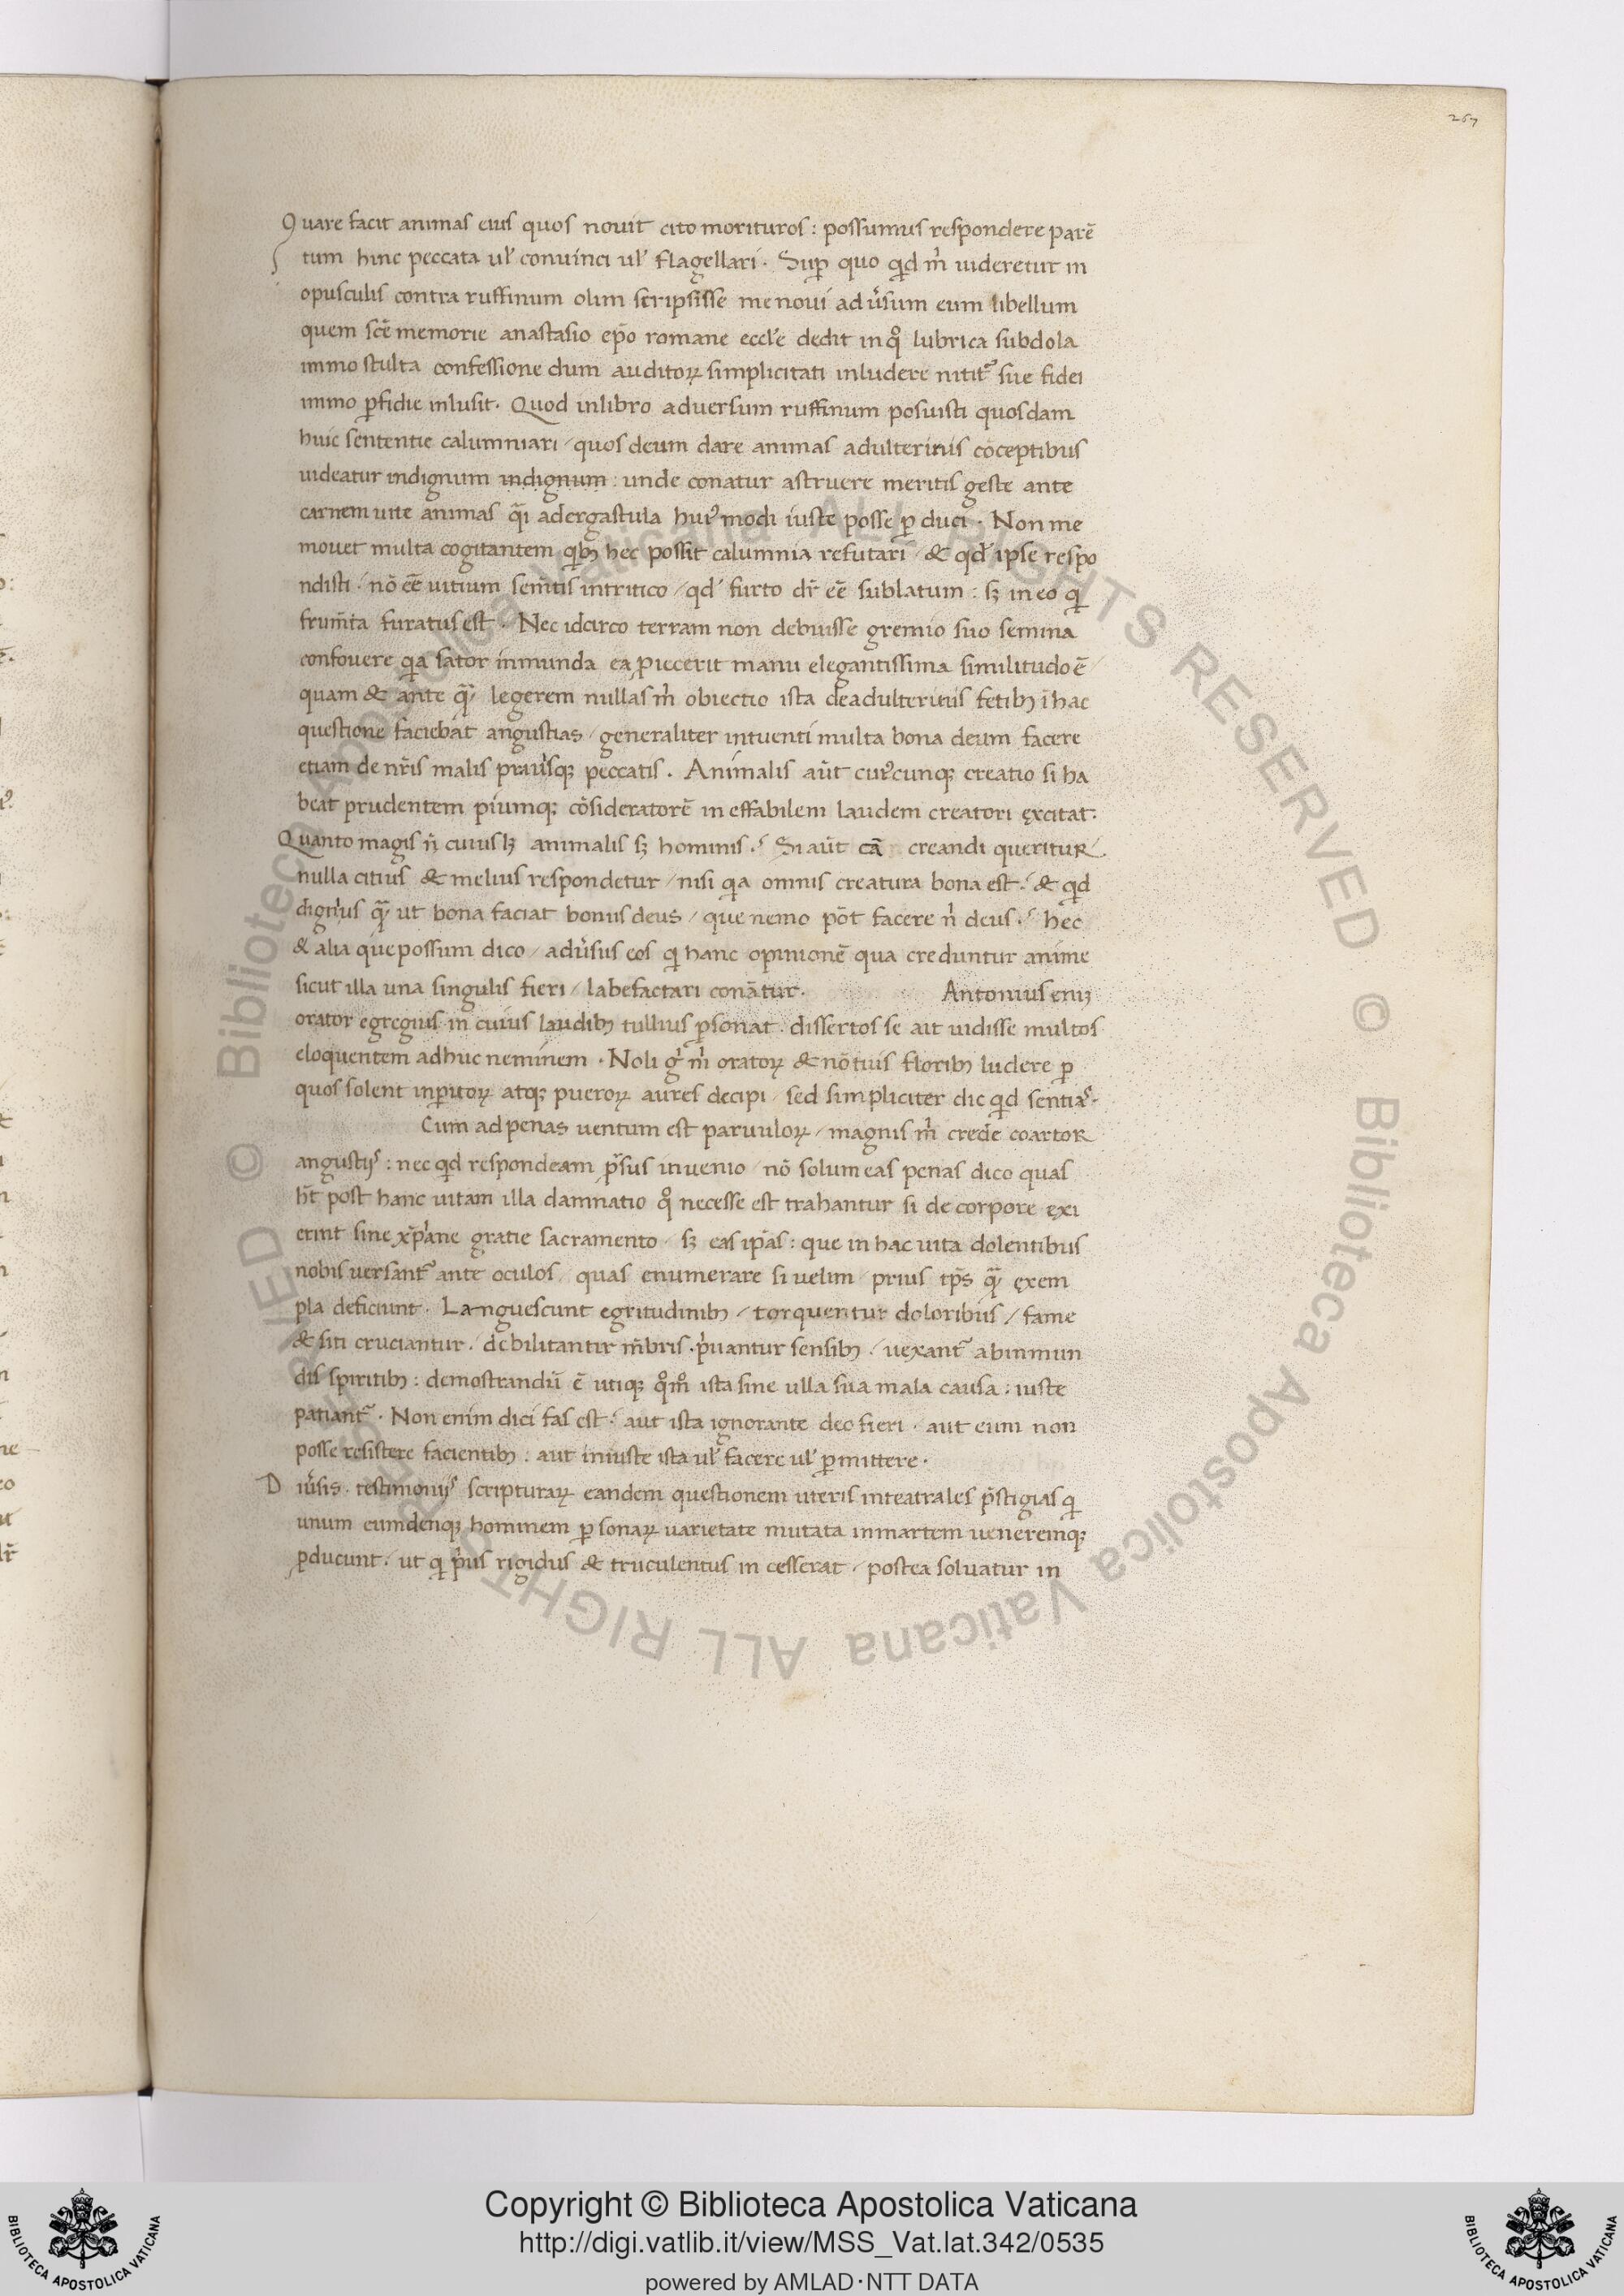 267
Quare facit animas eius quos nouit cito morituros : possumus respondere parē
tum hinc peccata ul̓ conuinci ul̓ flagellari . Suꝑ quo qͥd m̓ uideretur in
opusculis contra ruffinum olim scripsisse me noui adu̓sum eum libellum
quem scē memorie anastasio ep̄o romane eccl̓e dedit in qͦ lubrica subdola
immo stulta confessione dum auditoꝝ simplicitati inludere nitit᷑ sue fidei
immo ꝑfidie inlusit . Quod inlibro aduersum ruffinum posuisti quosdam
huic sententie calumniari / quos deum dare animas adulterinis cōceptibus
uideatur indignum indignum : unde conatur astruere meritis geste ante
carnem uite animas qͣi adergastula huiꝰmodi iuste posse ꝑ duci . Non me
mouet multa cogitantem qͥbꝫ hec possit calumnia refutari / & qd̓ ipse respo
ndisti / nō eē uitium sem̄tis intritico / qd̓ furto dr̄ eē sublatum : sꝫ in eo qͥ
frum̄ta furatus est . Nec idcirco terram non debuisse gremio suo semina
confouere qͥa sator inmunda ea ꝓieccerit manu elegantissima similitudo ē /
quam & ante qͣꝫ legerem nullas m̓ obiectio ista deadulterinis fetibꝫ ī hac
questione faciebat angustias / generaliter intuenti multa bona deum facere
etiam de nr̄is malis prauisqꝫ peccatis . Animalis aūt cuiꝰcunqꝫ creatio si ha
beat prudentem piumqꝫ cōsideratorē in effabilem laudem creatori excitat :
Quanto magis n̄ cuiuslꝫ animalis sꝫ hominis . Si aūt cā creandi queritur
nulla citius & melius respondetur / nisi qͥa omnis creatura bona est . & qͥd
dignius qͣꝫ ut bona faciat bonus deus / que nemo pōt facere n̓ deus . hec
& alia que possum dico / adu̓sus eos qͥ hanc opinionē qua creduntur anime
sicut illa una singulis fieri / labefactari conātur . Antonius eniꝫ
orator egregius in cuius laudibꝫ tullius ꝑsonat . dissertos se ait uidisse multos
eloquentem adhuc neminem . Noli g̓ m̓ oratoꝝ & nō tuis floribꝫ ludere ꝑ
quos solent inꝑitoꝝ atqꝫ pueroꝝ aures decipi / sed simpliciter dic qͥd sentias .
Cum ad penas uentum est paruuloꝝ / magnis m̓ crede coartor
angustijs : nec qͥd respondeam ꝓrsus inuenio / nō solum eas penas dico quas
h̄t post hanc uitam illa damnatio qͦ necesse est trahantur si de corpore exi
erint sine xp̄iane gratie sacramento / sꝫ eas ip̄as : que in hac uita dolentibus
nobis uersant᷑ ante oculos / quas enumerare si uelim / prius tp̄s qͣꝫ exem
pla deficiunt . Languescunt egritudinibꝫ / torquentur doloribus / fame
& siti cruciantur . debilitantur m̄bris . pͥuantur sensibꝫ . uexant᷑ abinmun
dis spiritibꝫ : demostrandū ē utiqꝫ qͦm̊ ista sine ulla sua mala causa : iuste
patiant᷑ . Non enim dici fas est . aut ista ignorante deo fieri . aut eum non
posse resistere facientibꝫ : aut iniuste ista ul̓ facere ul̓ ꝑmittere .
Diu̓sis . testimonijs scripturaꝝ eandem questionem uteris inteatrales p̄stigias qͥ
unum eumdenqꝫ hominem ꝑsonaꝝ uarietate mutata inmartem ueneremqꝫ
ꝓducunt . ut qͥ pͥus rigidus & truculentus in cesserat / postea soluatur in
Copyright © Biblioteca Apostolica Vaticana
http://digi.vatlib.it/view/MSS_Vat.lat.342/0535
powered by AMLAD·NTT DATA